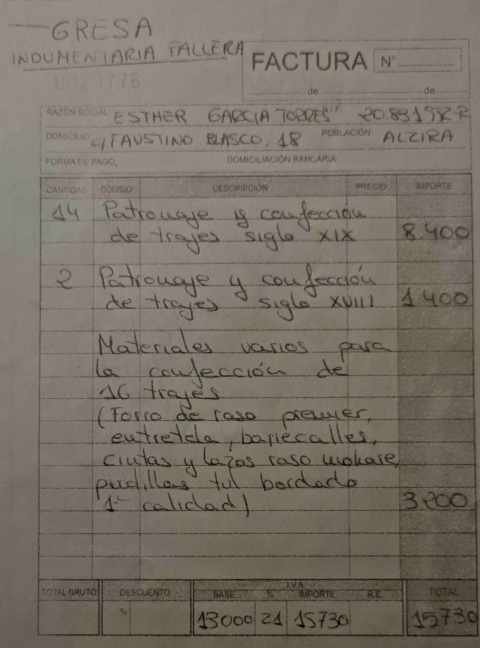 GRESA
INDUMENTARIA FALLERA
FACTURA Nº
de de
RAZÓN SOCIAL ESTHER GARCIA TORRES
DOMICILIO C/ FAUSTINO BLASCO, 18 POBLACIÓN ALZIRA
FORMA DE PAGO, DOMICILIACIÓN BANCARIA
CANTIDAD CODIGO DESCRIPCIÓN PRECIO IMPORTE
14 Patronage y confección
de trajes siglo XIX 8.400
2 Patronage y confección
de trajes siglo XVIII 1.400
Materiales varios para
la confección de
16 trajes
(Forro de raso premier,
entretela, barrecalles,
cintas y lazos raso
puntillas tul bordado
1ª calidad) 3.200
I.V.A.
TOTAL BRUTO DESCUENTO BASE % IMPORTE R.E. TOTAL
% 13000 21 15730 15730